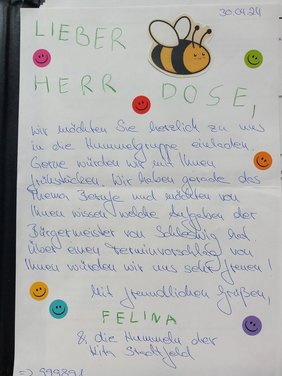 30.04.24
LIEBER
HERR DOSE,
wir möchten Sie herzlich zu uns
in die Hummelgruppe einladen.
Gerne würden wir mit Ihnen
frühstücken. Wir haben gerade das
Thema Berufe und möchten von
Ihnen wissen welche Aufgaben der
Bürgermeister von Schleswig hat
Über einen Terminvorschlag von
Ihnen würden wir uns sehr freuen!
Mit freundlichen Grüßen,
FELINA
& die Hummeln der
Kita Stadtfeld